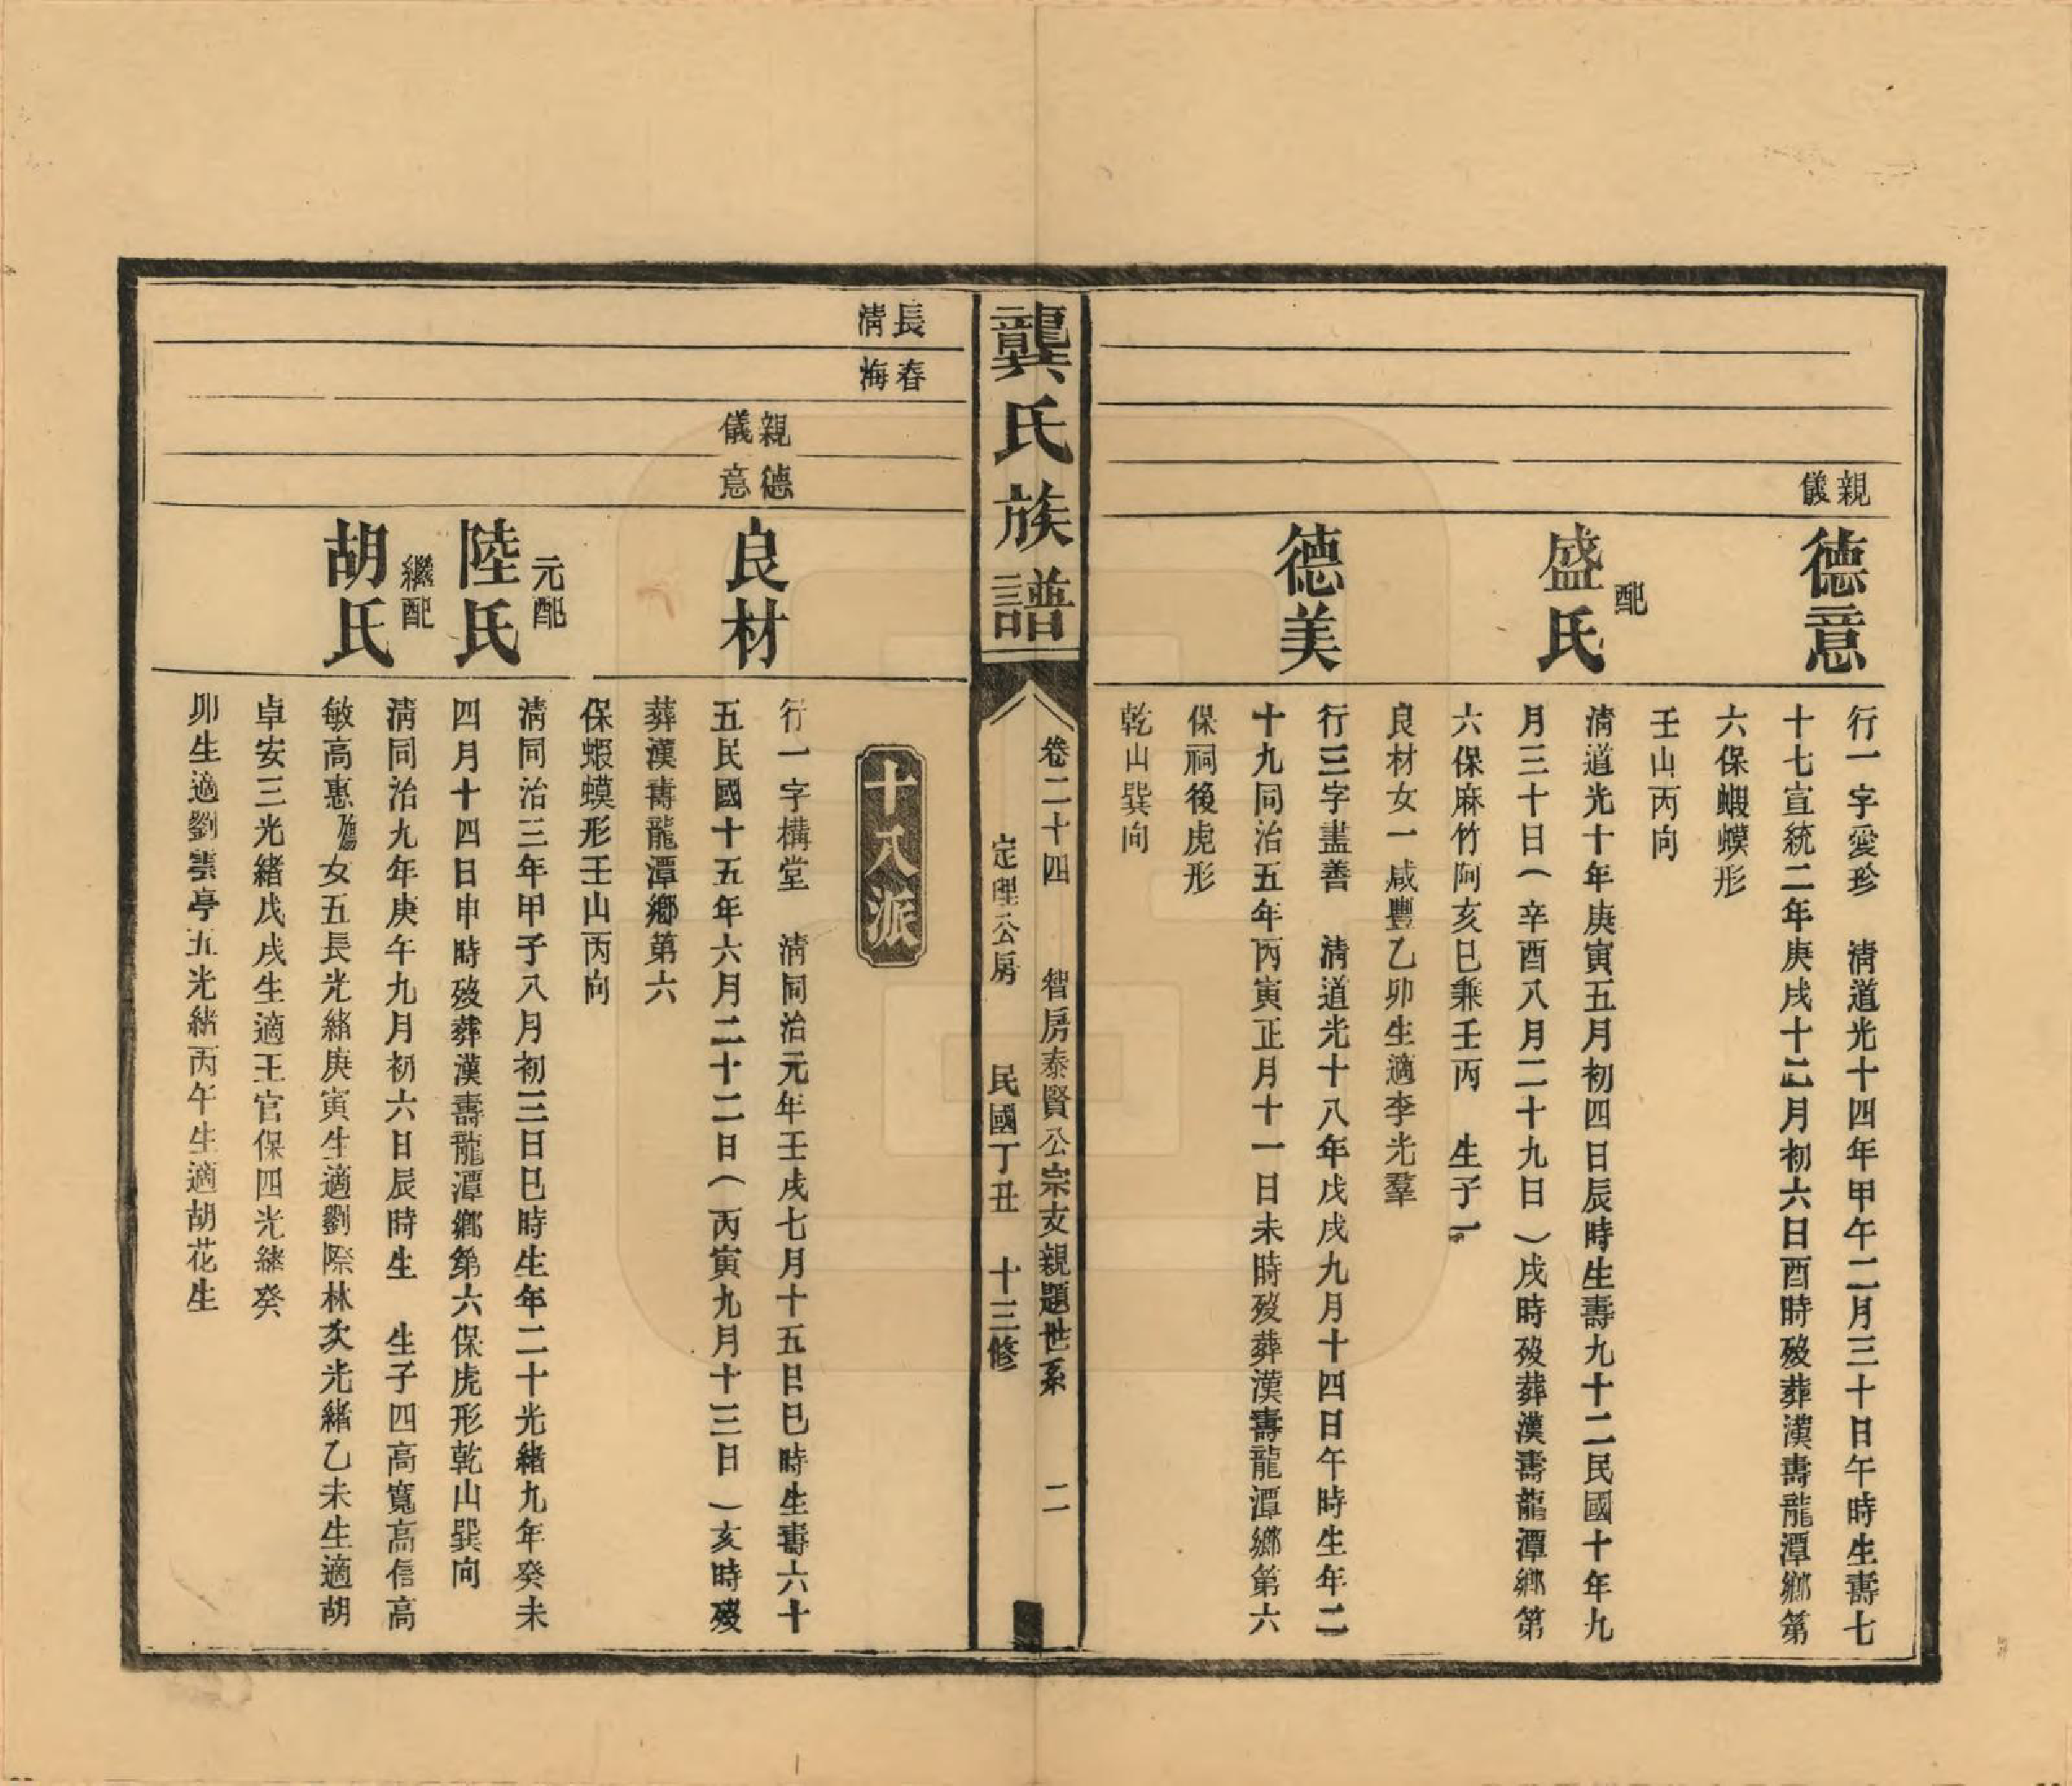 親儀
德意
行一字愛珍　清道光十四年甲午二月三十日午時生壽七
十七宣統二年庚戌十二月初六日酉時歿葬漢壽龍潭鄉第
六保蝦蟆形
壬山丙向
配
盛氏
清道光十年庚寅五月初四日辰時生壽九十二民國十年九
月三十日（辛酉八月二十九日）戌時歿葬漢壽龍潭鄉第
六保麻竹阿亥巳兼壬丙　生子一
良材女一咸豐乙卯生適李光羣
德美
行三字盡善　清道光十八年戊戌九月十四日午時生年二
十九同治五年丙寅正月十一日未時歿葬漢壽龍潭鄉第六
保祠後虎形
乾山巽向
龔氏族譜
卷二十四　智房泰賢公宗支親題世系　二
定理公房　民國丁丑　十三修
長清
春梅
十八派
親儀
德意
良材
行一字構堂　清同治元年壬戌七月十五日巳時生壽六十
五民國十五年六月二十二日（丙寅九月十三日）亥時歿
葬漢壽龍潭鄉第六
保蝦蟆形壬山丙向
元配
陸氏
清同治三年甲子八月初三日巳時生年二十光緒九年癸未
四月十四日申時歿葬漢壽龍潭鄉第六保虎形乾山巽向
繼配
胡氏
清同治九年庚午九月初六日辰時生　生子四高寬高信高
敏高惠女五長光緒庚寅生適劉際林次光緒乙未生適胡
卓安三光緒戊戌生適王官保四光緒癸
卯生適劉雲亭五光緒丙午生適胡花生